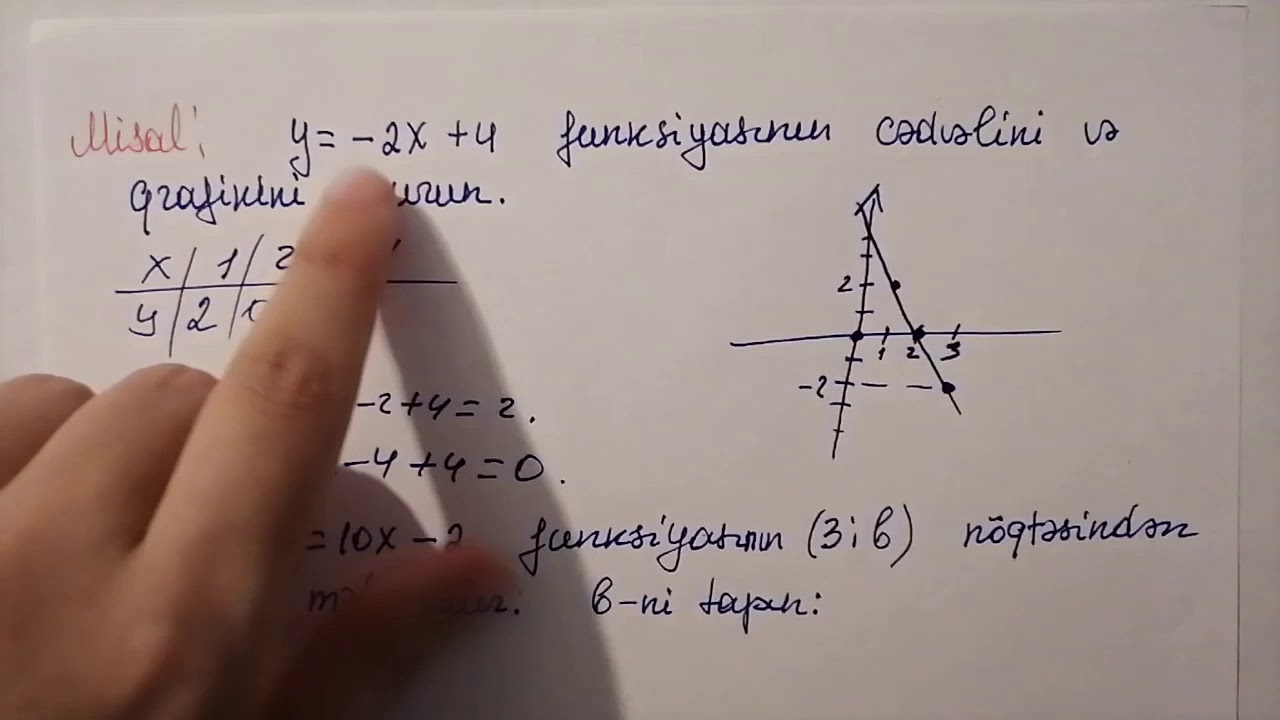 Misal: y = -2x + 4 funksiyasının cədvəlini və
qrafikini
x | 1 | 2
y | 2
2
1 2 3
-2
-2+4=2.
-4+4=0.
=10x-2 funksiyasının (3;b) nöqtəsindən
b-ni tapın: